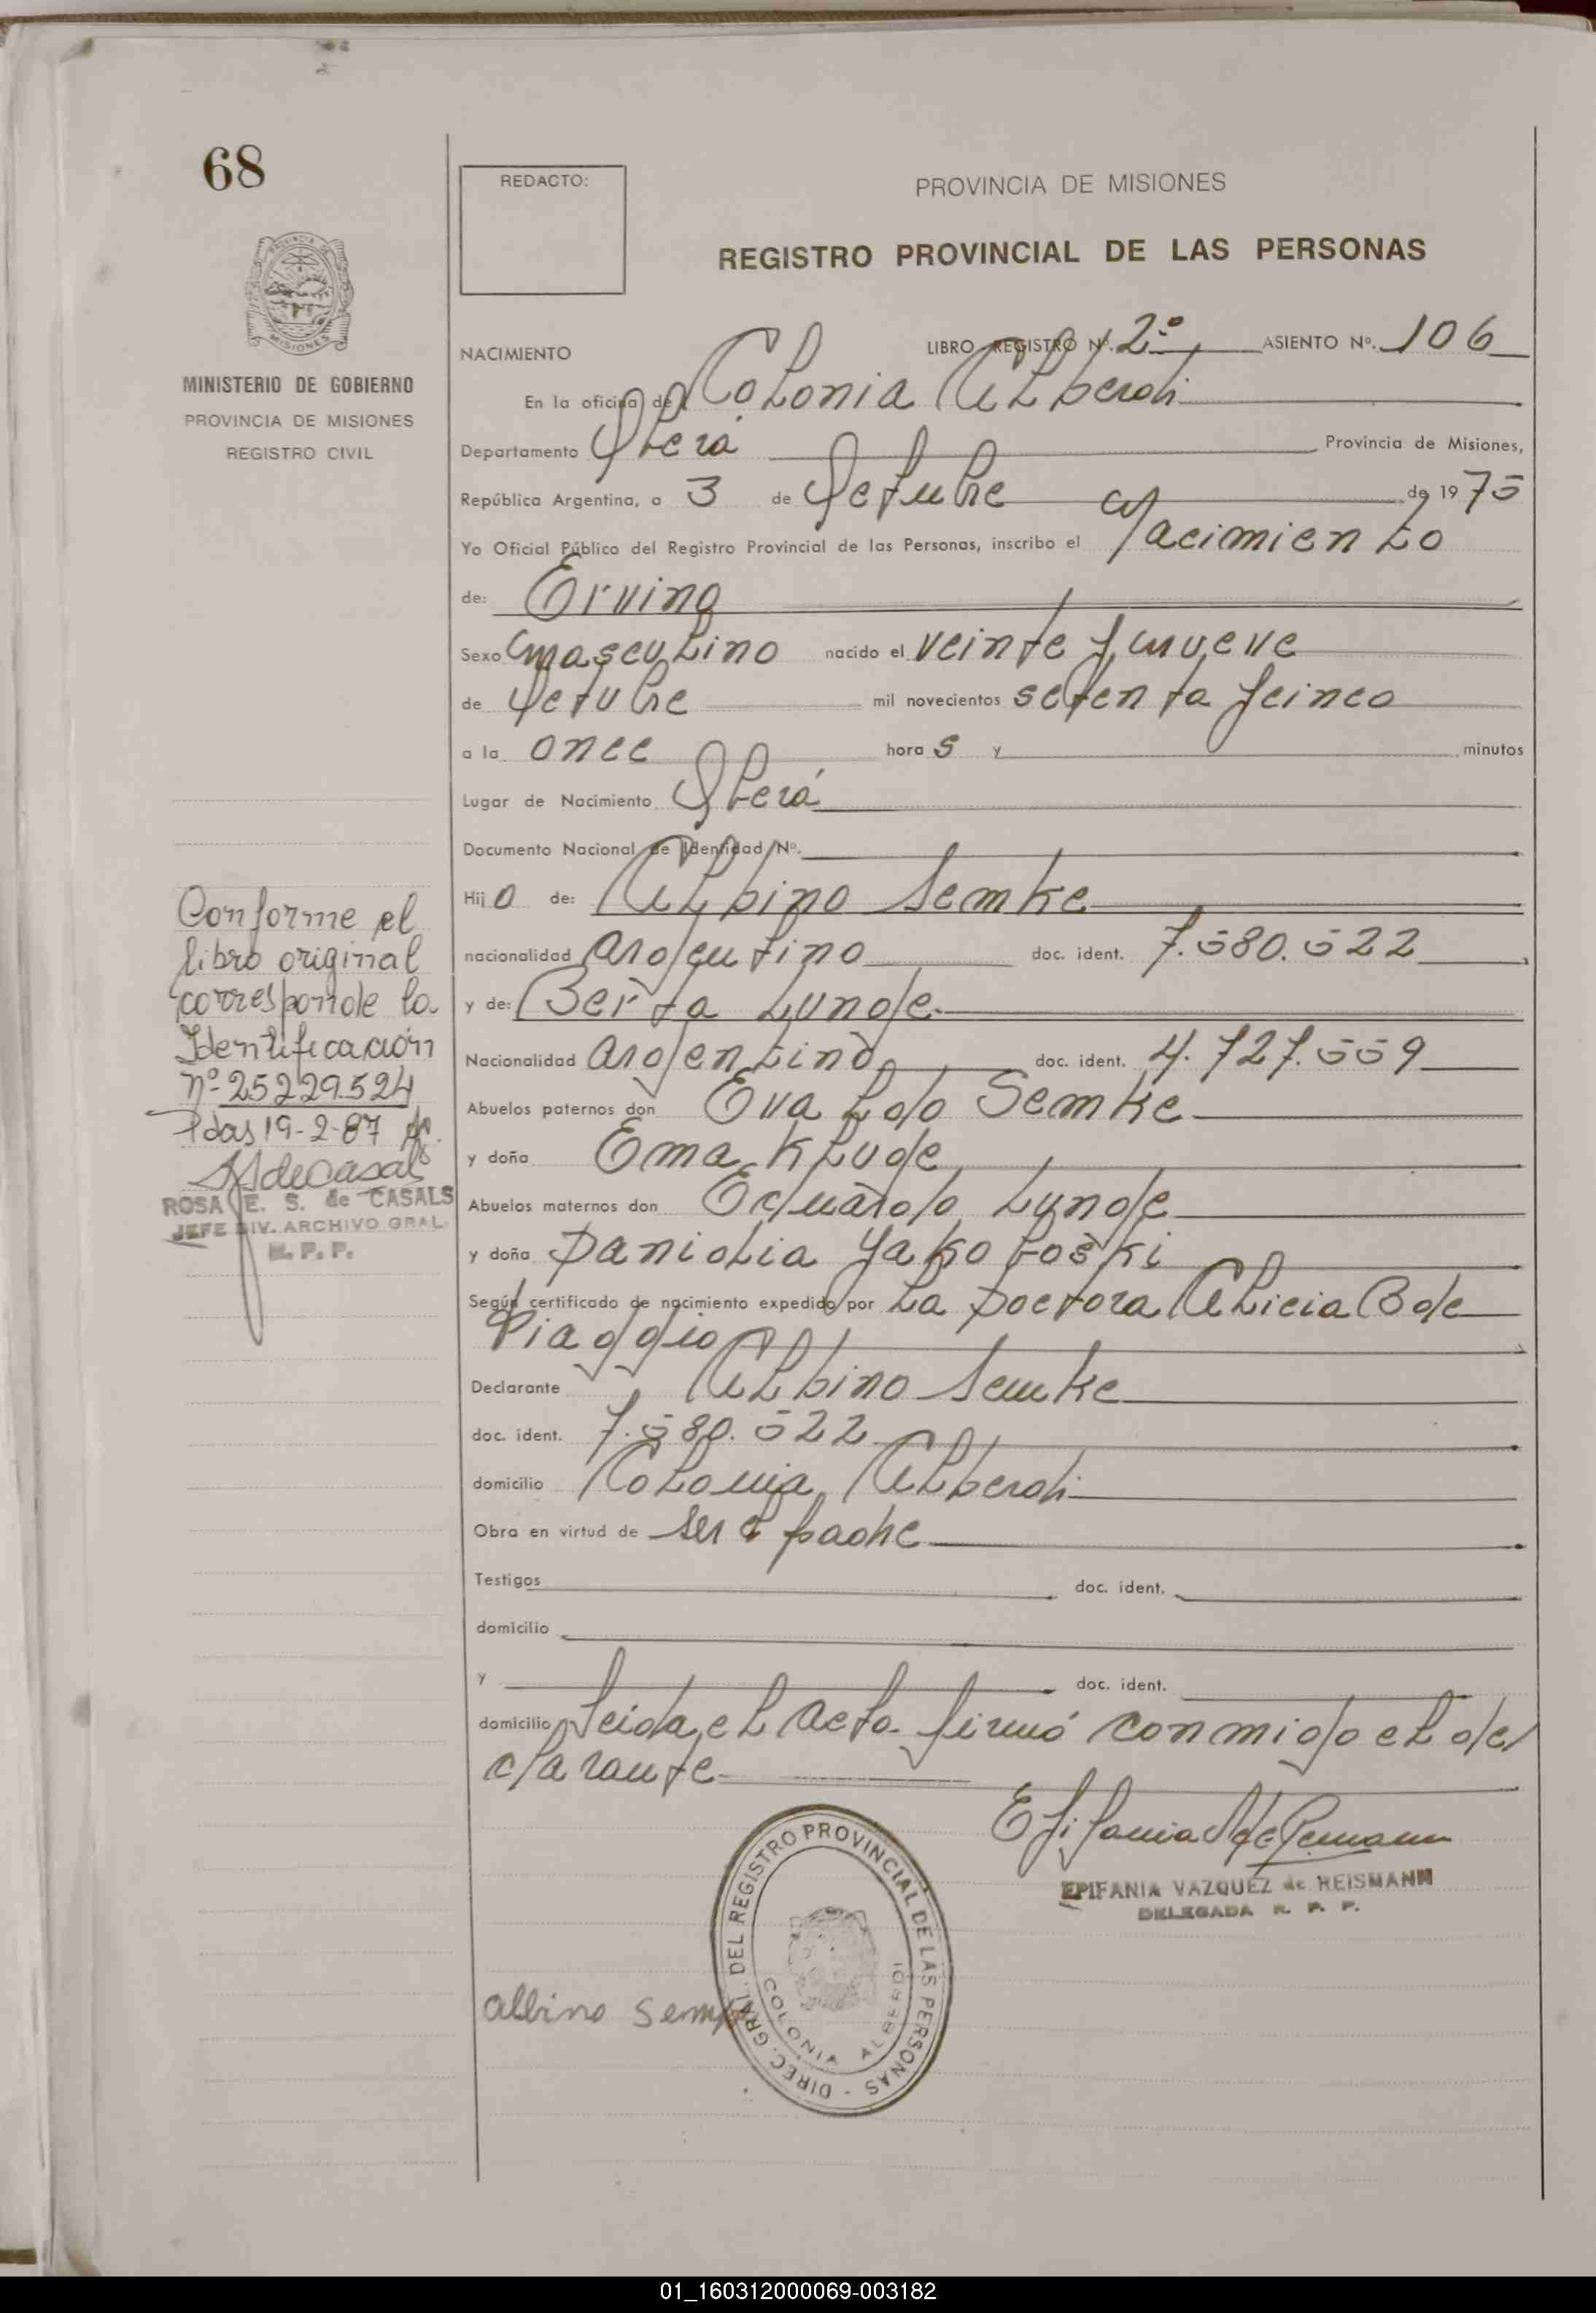 68
REDACTO:
PROVINCIA DE MISIONES
REGISTRO PROVINCIAL DE LAS PERSONAS
MINISTERIO DE GOBIERNO
PROVINCIA DE MISIONES
REGISTRO CIVIL
NACIMIENTO
LIBRO REGISTRO Nº. 2º ASIENTO Nº. 106
En la oficina de Colonia Alberdi
Departamento Oberá Provincia de Misiones,
República Argentina, a 3 de Octubre de 1975
Yo Oficial Público del Registro Provincial de las Personas, inscribo el Nacimiento
de: Ervino
Sexo masculino nacido el veinte y nueve
de Octubre mil novecientos setenta y cinco
a la once hora s y minutos
Lugar de Nacimiento Oberá
Documento Nacional de Identidad Nº.
Hij o de: Albino Semke
nacionalidad argentino doc. ident. 7.580.522
y de: Berta Lunge
Nacionalidad argentino doc. ident. 4.727.559
Abuelos paternos don Evaldo Semke
y doña Ema Kluge
Abuelos maternos don Eduardo Lunge
y doña Daniolia
Según certificado de nacimiento expedido por La Doctora Alicia B de
Viaggio
Declarante Albino Semke
doc. ident. 7.580.522
domicilio Colonia Alberdi
Obra en virtud de ser el padre
Testigos doc. ident.
domicilio
y doc. ident.
domicilio Leida el acto firmó conmigo el de
clarante
EPIFANIA VAZQUEZ de REISMANN
DELEGADA R. P. P.
albino semke
DIREC. GRAL. DEL REGISTRO PROVINCIAL DE LAS PERSONAS -
COLONIA ALBERDI
Conforme el
libro original
corresponde la
Identificación
nº 25229.524
Pdas 19-2-87
ROSA E. S. de CASALS
JEFE DIV. ARCHIVO GRAL.
R. P. P.
01_160312000069-003182